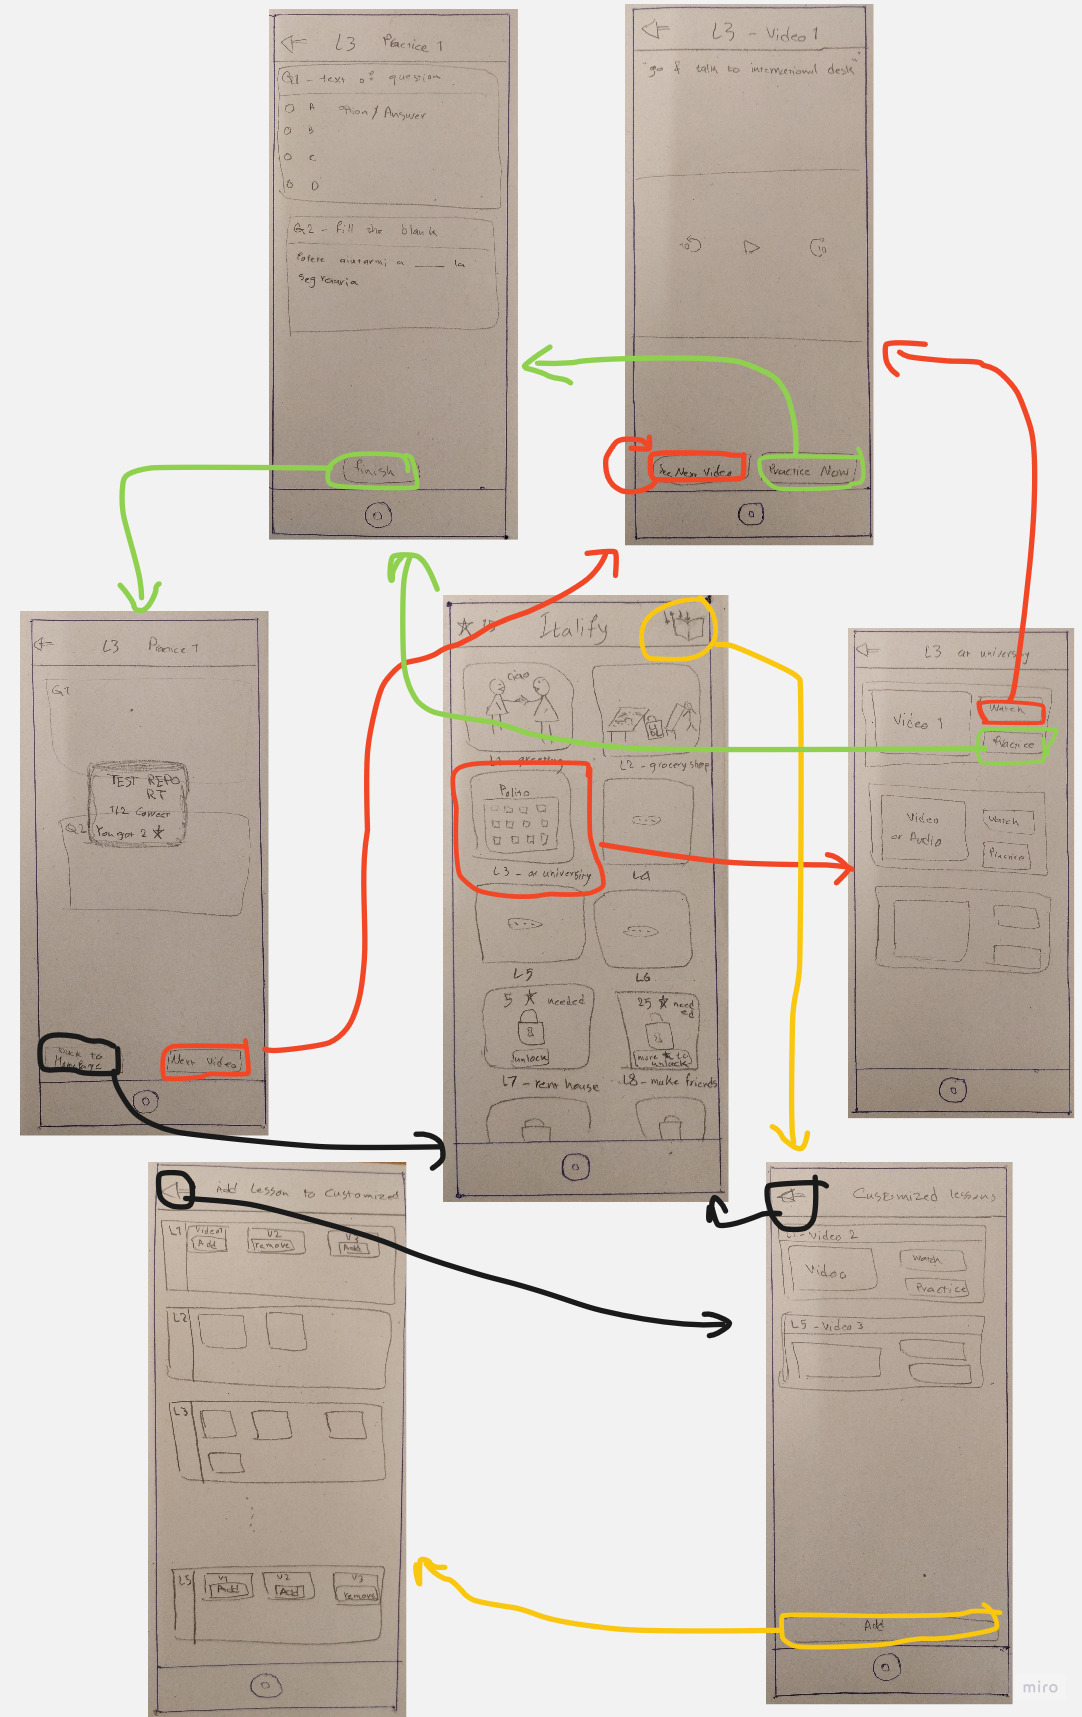 L3 Practice 1
Q1 - text of question
A option / Answer
B
C
D
Q2 - Fill the blank
Potete aiutarmi a ____ la
segreteria
finish
L3 - Video 1
"go & talk to international desk"
10
10
See Next Video
Practice Now
L3 Practice 1
Q1
TEST REPO
RT
1/2 Correct
You got 2 ★
Q2
Back to
Homepage
Next Video
★ 15 Italify
Ciao
L1 - greeting
L2 - grocery shop
Polito
L3 - at university
L4
L5
L6
5 ★ needed
unlock
L7 - rent house
25 ★ need
ed
more ★ to
unlock
L8 - make friends
L3 at university
Video 1
Watch
Practice
Video
or Audio
Watch
Practice
Add Lesson to Customized
L1
Video1
Add
V2
remove
V3
Add
L2
L3
L5
V1
Add
V2
Add
V3
remove
Customized lessons
L1 - Video 2
Video
Watch
Practice
L5 - Video 3
Add
miro